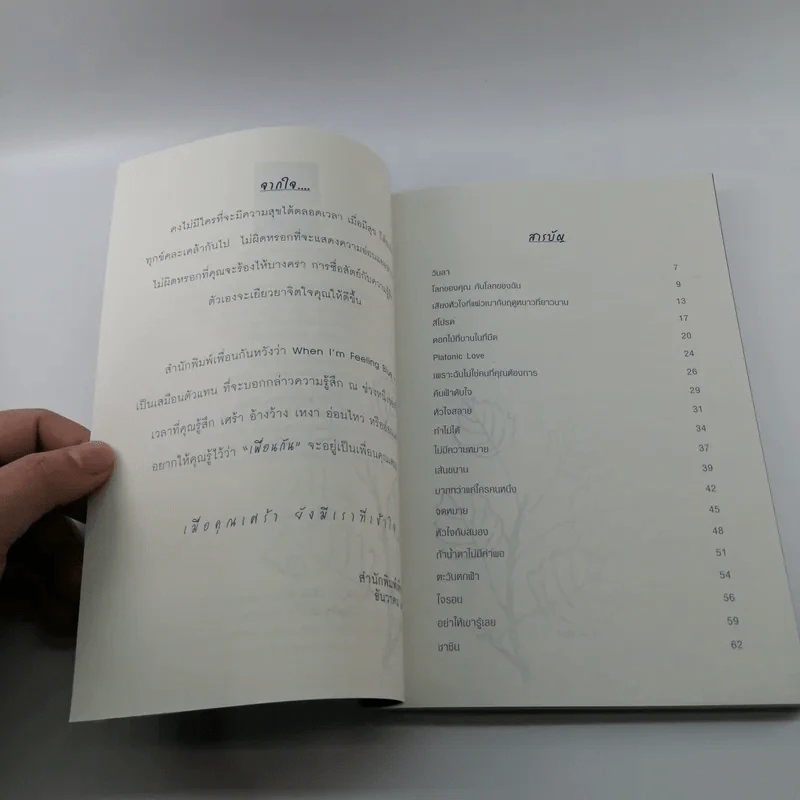 จากใจ....
คงไม่มีใครที่จะมีความสุขได้ตลอดเวลา เมื่อมีสุข
ทุกข์คละเคล้ากันไป ไม่ผิดหรอกที่จะแสดงความอ่อนแอ
ไม่ผิดหรอกที่คุณจะร้องไห้บางครา การซื่อสัตย์กับความรู้สึก
ตัวเองจะเยียวยาจิตใจคุณให้ดีขึ้น
สำนักพิมพ์เพื่อนกันหวังว่า When I'm Feeling Blue
เป็นเสมือนตัวแทน ที่จะบอกกล่าวความรู้สึก ณ ช่วงหนึ่ง
เวลาที่คุณรู้สึก เศร้า อ้างว้าง เหงา อ่อนไหว หรือ
อยากให้คุณรู้ไว้ว่า "เพื่อนกัน" จะอยู่เป็นเพื่อนคุณ
เมื่อคุณเศร้า ยังมีเราที่เข้าใจ
สำนักพิมพ์
ธันวาคม
สารบัญ
วันลา 7
โลกของคุณ กับโลกของฉัน 9
เสียงหัวใจที่แผ่วเบากับฤดูหนาวที่ยาวนาน 13
สีโปรด 17
ดอกไม้ที่บานในที่มืด 20
Platonic Love 24
เพราะฉันไม่ใช่คนที่คุณต้องการ 26
คืนฟ้าดับใจ 29
หัวใจสลาย 31
ทำไม่ได้ 34
ไม่มีความหมาย 37
เส้นขนาน 39
มากกว่าแค่ใครคนหนึ่ง 42
จดหมาย 45
หัวใจกับสมอง 48
ถ้าน้ำตาไม่มีค่าพอ 51
ตะวันตกฟ้า 54
ใจรอน 56
อย่าให้เขารู้เลย 59
ชาชิน 62